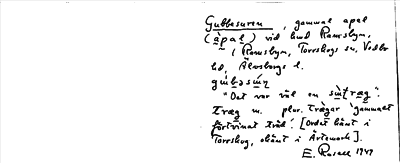 Gubbesuren, gammal apel
(àpal) vid hmd Ramsbyn,
(Ramsbyn, Torrskogs sn, Vedbo
hd, Älvsborgs l.
"Det var väl en sùtræg".
træg m. plur. trägar 'gammalt
förtvinat träd'. [Ordet känt i
Torrskog, okänt i Ärtemark].
E. Rosell 1947